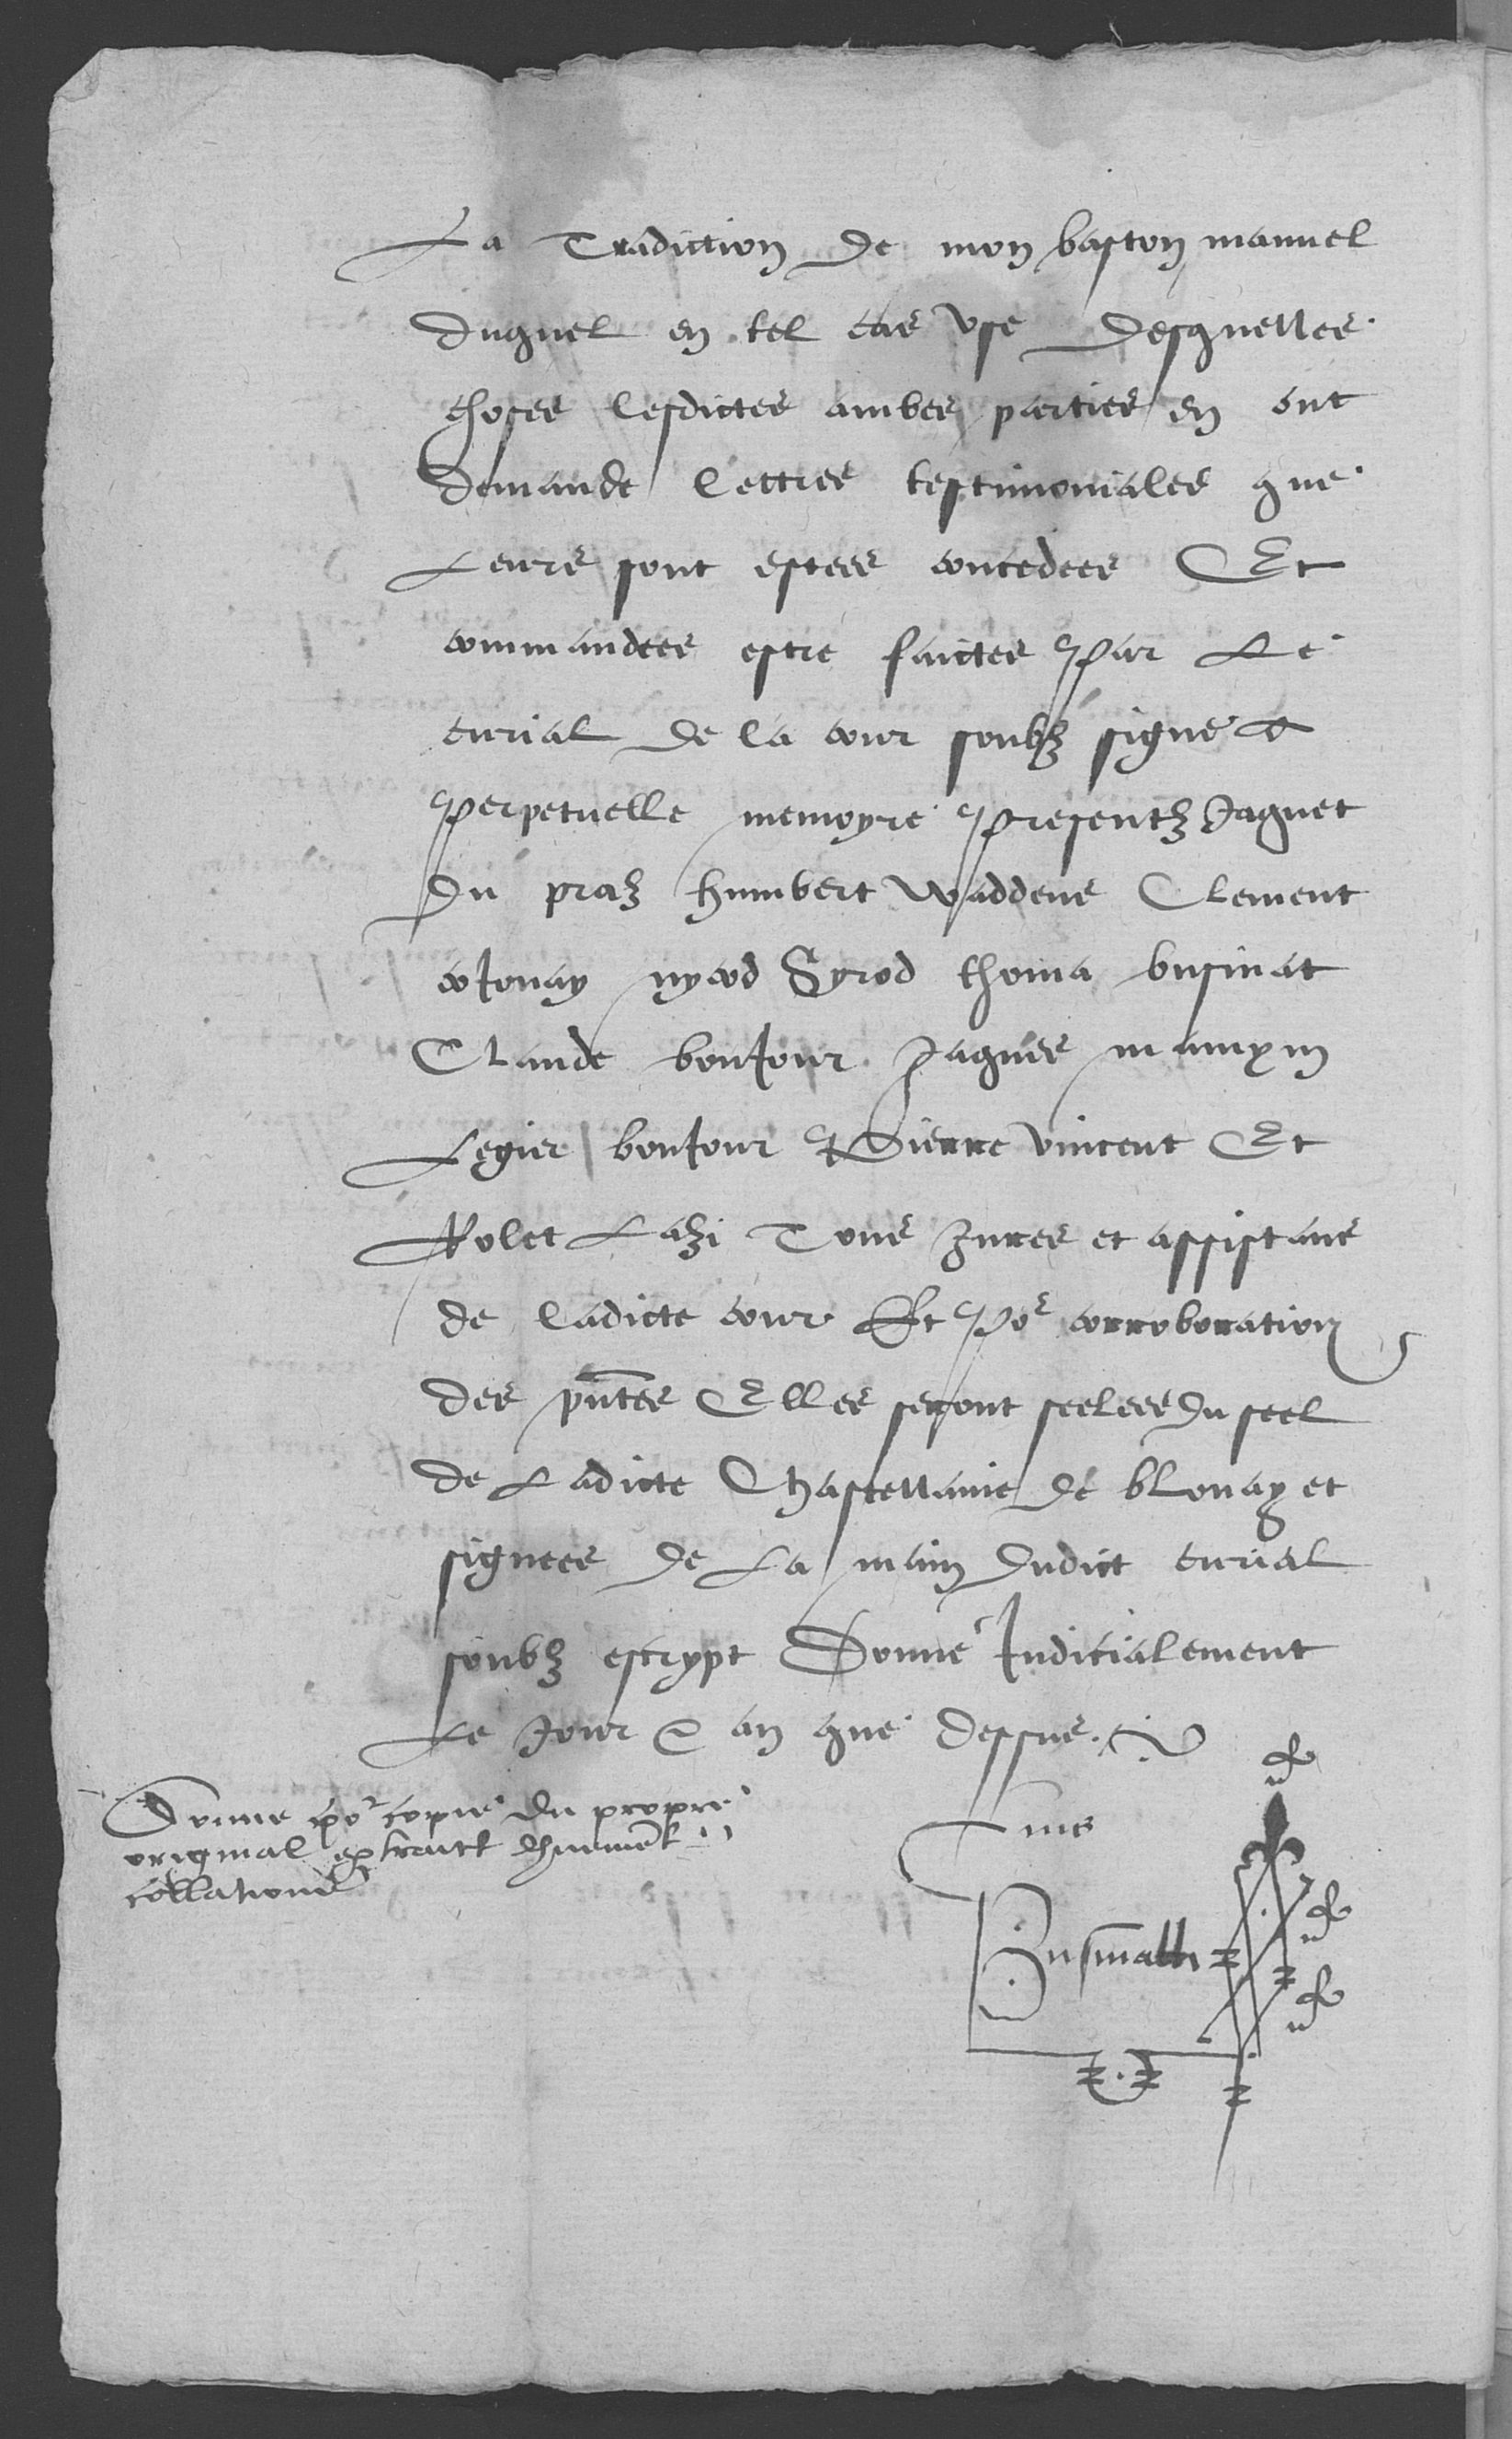 La Tradiction de mon baston manuel
duquel en tel cas use desquelles
choses lesdictes ambes parties en ont
demande lettres testimoniales que
Leurs sont estees concedees Et
commandees estre faictes Par Le
curial de la cour soubz signe a
Perpetuelle memoyre Presentz Jaques
du praz humbert waddens Clement
cotonay nycod Gyrod thoma businat
Claude bonJour Jaques mamyn
Legier bonJour Pierre vincent Et
Rolet Lazi Tous Jures et assistans
de ladicte cour Et Por corroboration
des pntes Elles seront seelees du seel
de Ladicte Chastellanie de blonay et
signees de La main dudict curial
soubz escrypt Donne Judicialement
Le Jour & an que dessus.
Donne por copie du propre
original extraict dhuement
collatione
Businatti